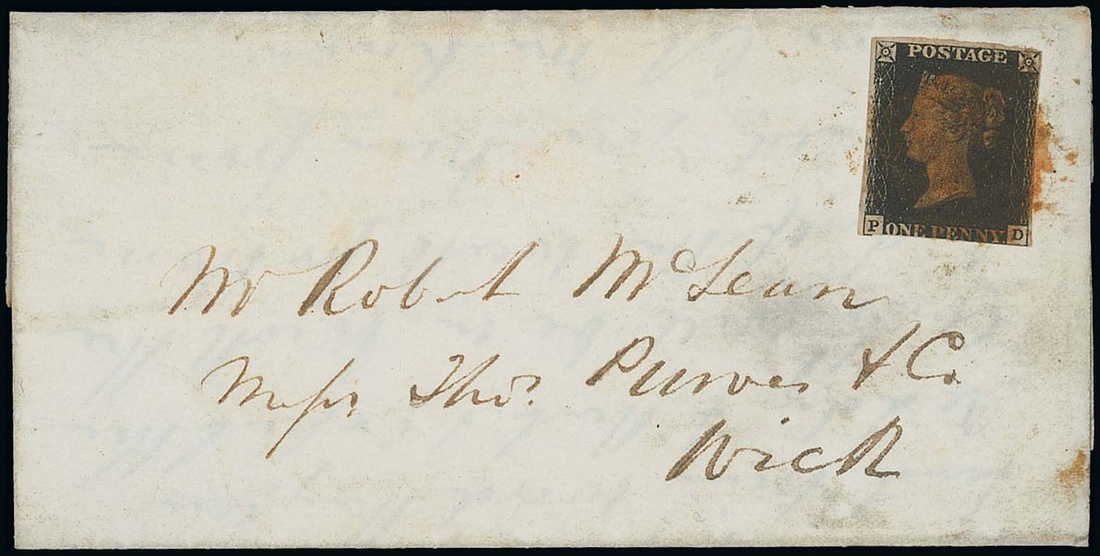 POSTAGE
P ONE PENNY D
Mr Robert McLean
Messrs Thos. Purves & Co.
Wick